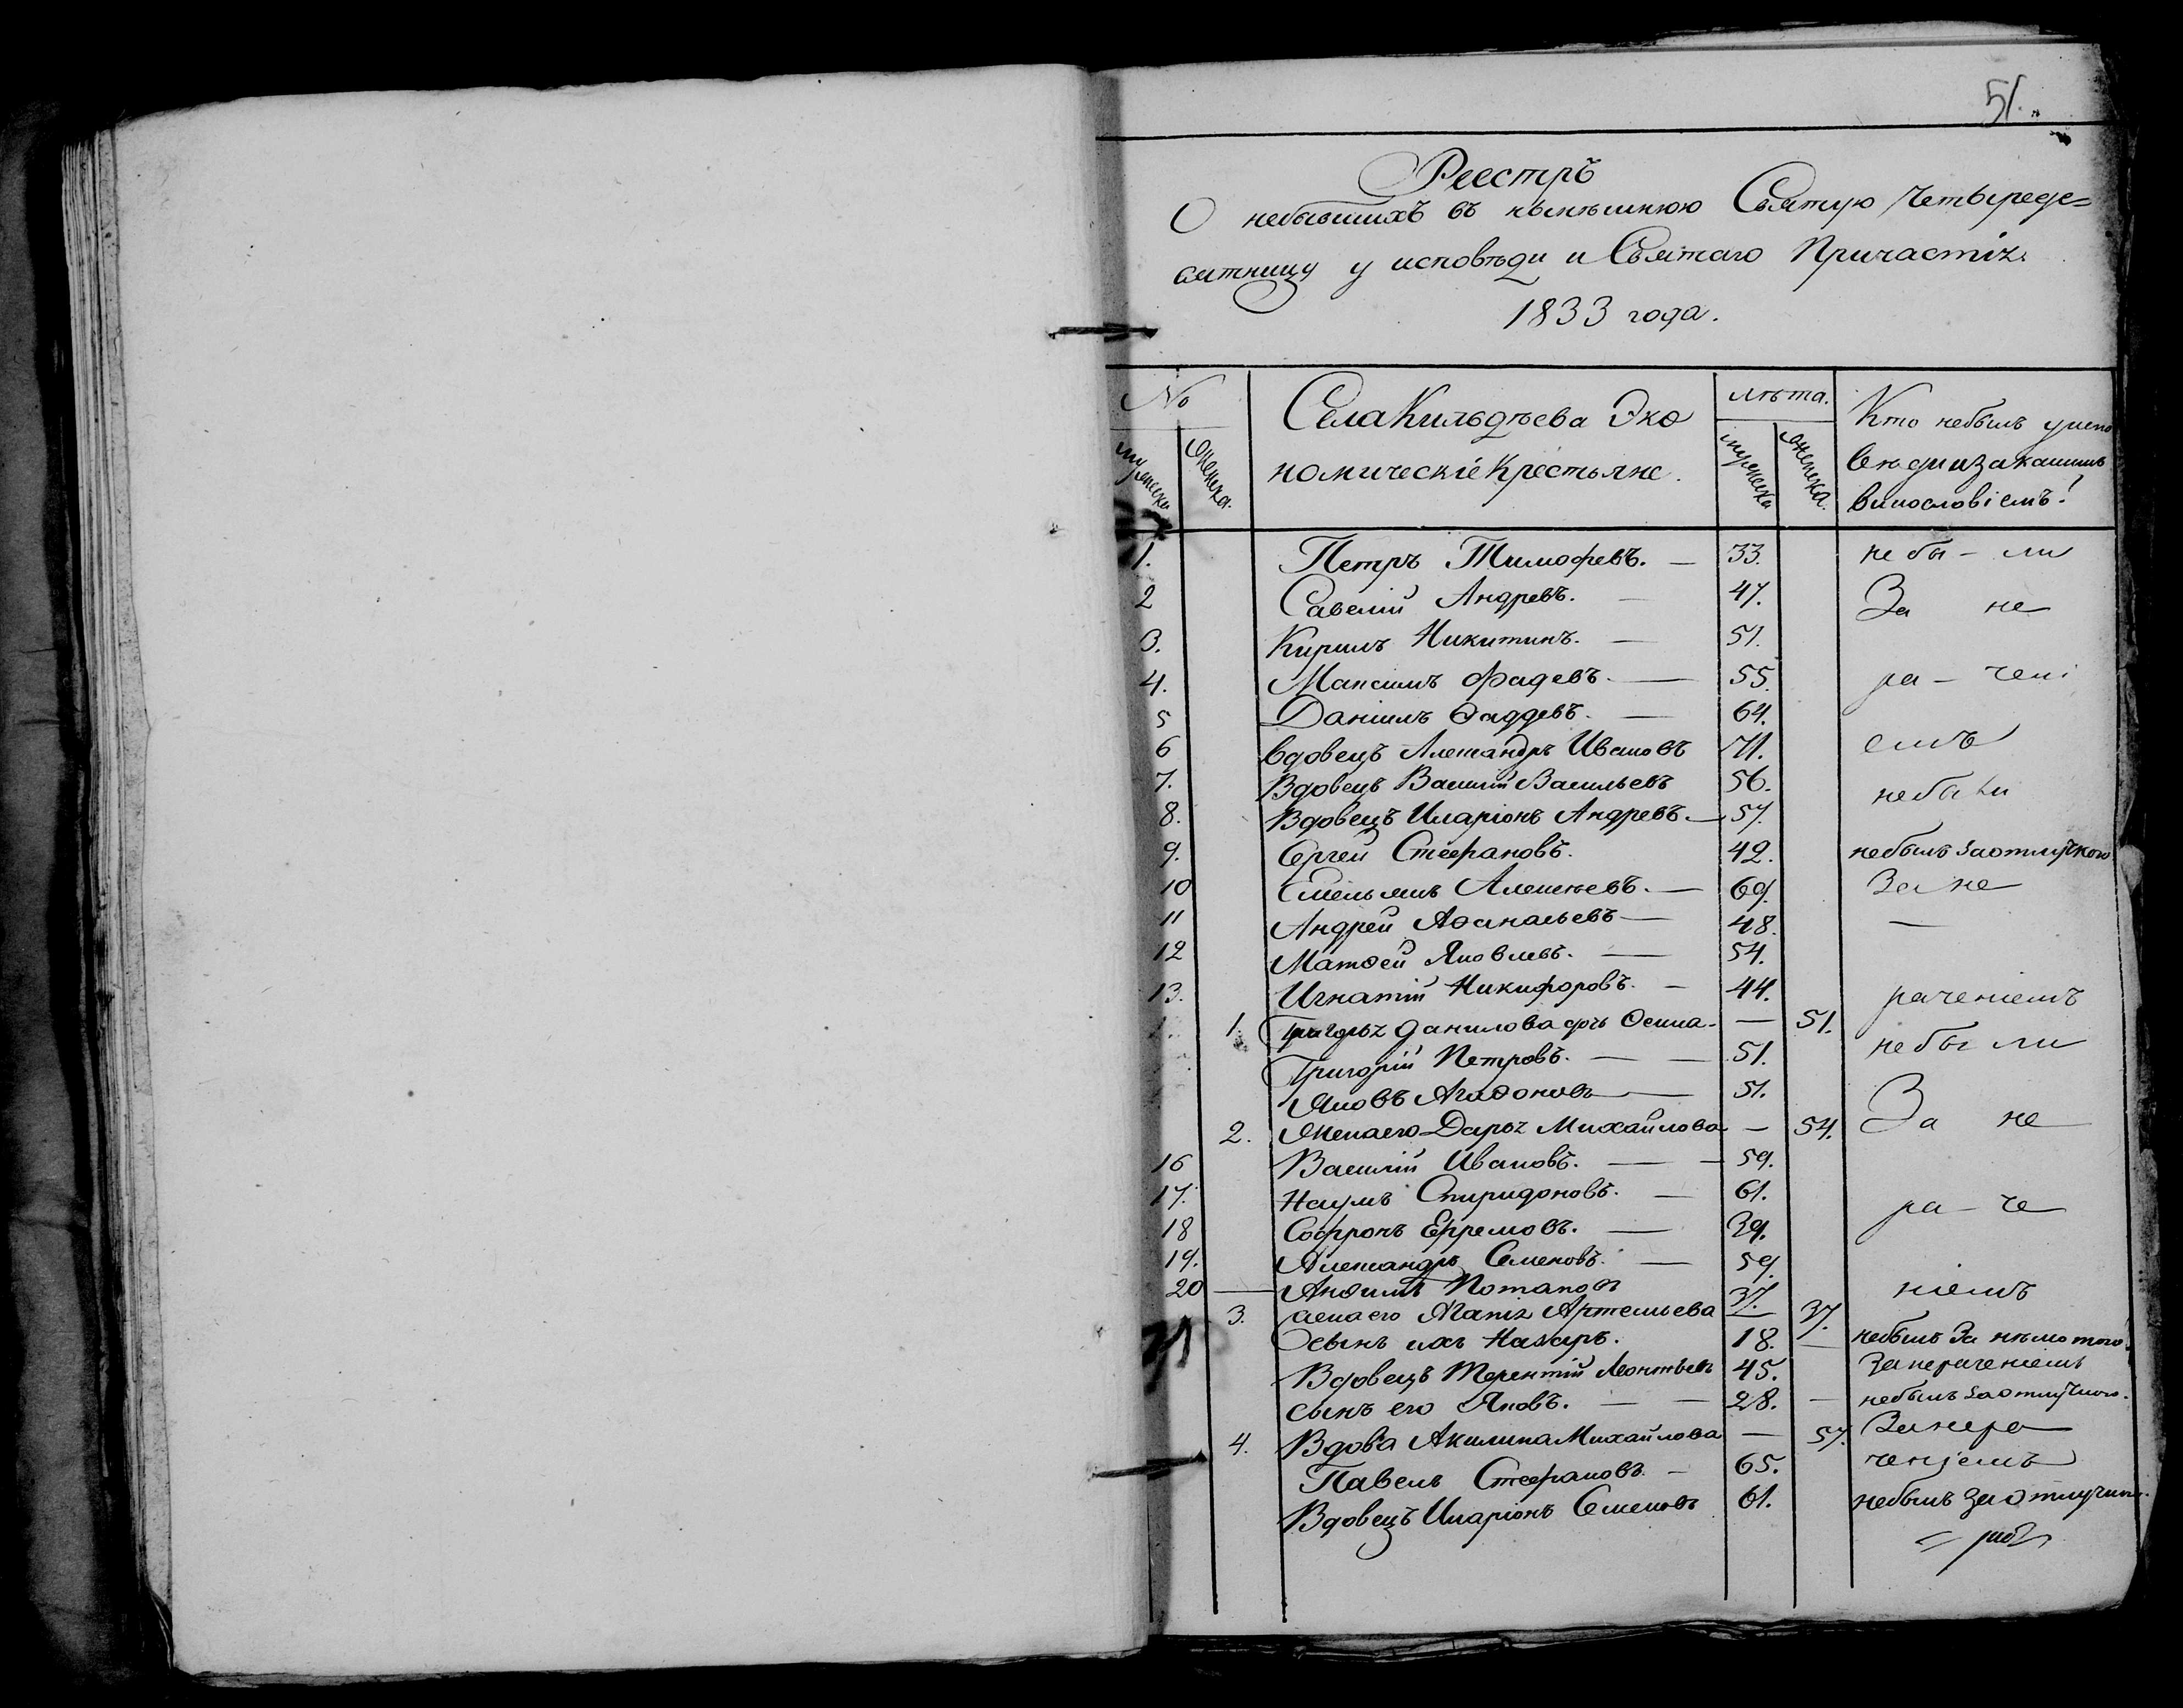 51.
Реестръ
О небывшихъ въ нынѣшнюю Святую Четыреде=
сятницу у исповѣди и Святаго Причастія
1833 года.
№ Села Кильдѣева Эко лѣта. Кто небылъ у испо
номическіе Крестьяне. вѣди и за какимъ
мужеска женска. мужеска женска. винословіемъ!
1. Петръ Тимофевъ. — 33. не бы — ли
2 Савелій Андревъ. — 47. За не
3. Кирилъ Никитинъ. — 51.
4. Максимъ Фадевъ. — 55. ра — чені
5 Даніилъ Фаддевъ. — 64.
6 Вдовецъ Александръ Ивановъ 71. емъ
7. Вдовецъ Василій Васильевъ 56. небыли
8. Вдовецъ Иларіонъ Андревъ. — 57.
9. Сергей Стефановъ. 42. небылъ за отлучкою
10 Емельянъ Алексѣевъ. — 69. За не
11 Андрей Аѳанасьевъ — 48. —
12 Матѳей Яковлевъ. — 54.
13. Игнатій Никифоровъ. — 44. раченіемъ
1. Данилова — 51.
Григорій Петровъ. — — 51. небы ли
Яковъ Агаѳоновъ — 51.
2. Жена его Дарья Михайлова — 54. За не
16 Василій Ивановъ. — — 59.
17. Наумъ Спиридоновъ. — 61. ра — че
18 Софронъ Ефремовъ. — 39.
19. Александръ Семеновъ. — 59.
20 — Анѳимъ Потаповъ 37. ніемъ
3. жена его Артемьева — 37.
сынъ ихъ Назаръ. 18. — небылъ За
Вдовецъ Терентій Леонтьевъ 45. За нераченіемъ
сынъ его Яковъ. — — 28. — небылъ за отлучкою.
4. Вдова Акилина Михайлова — 57. За нера
Павелъ Стефановъ. — 65. ченіемъ
Вдовецъ Иларіонъ Семеновъ 61. небылъ за отлучкою.